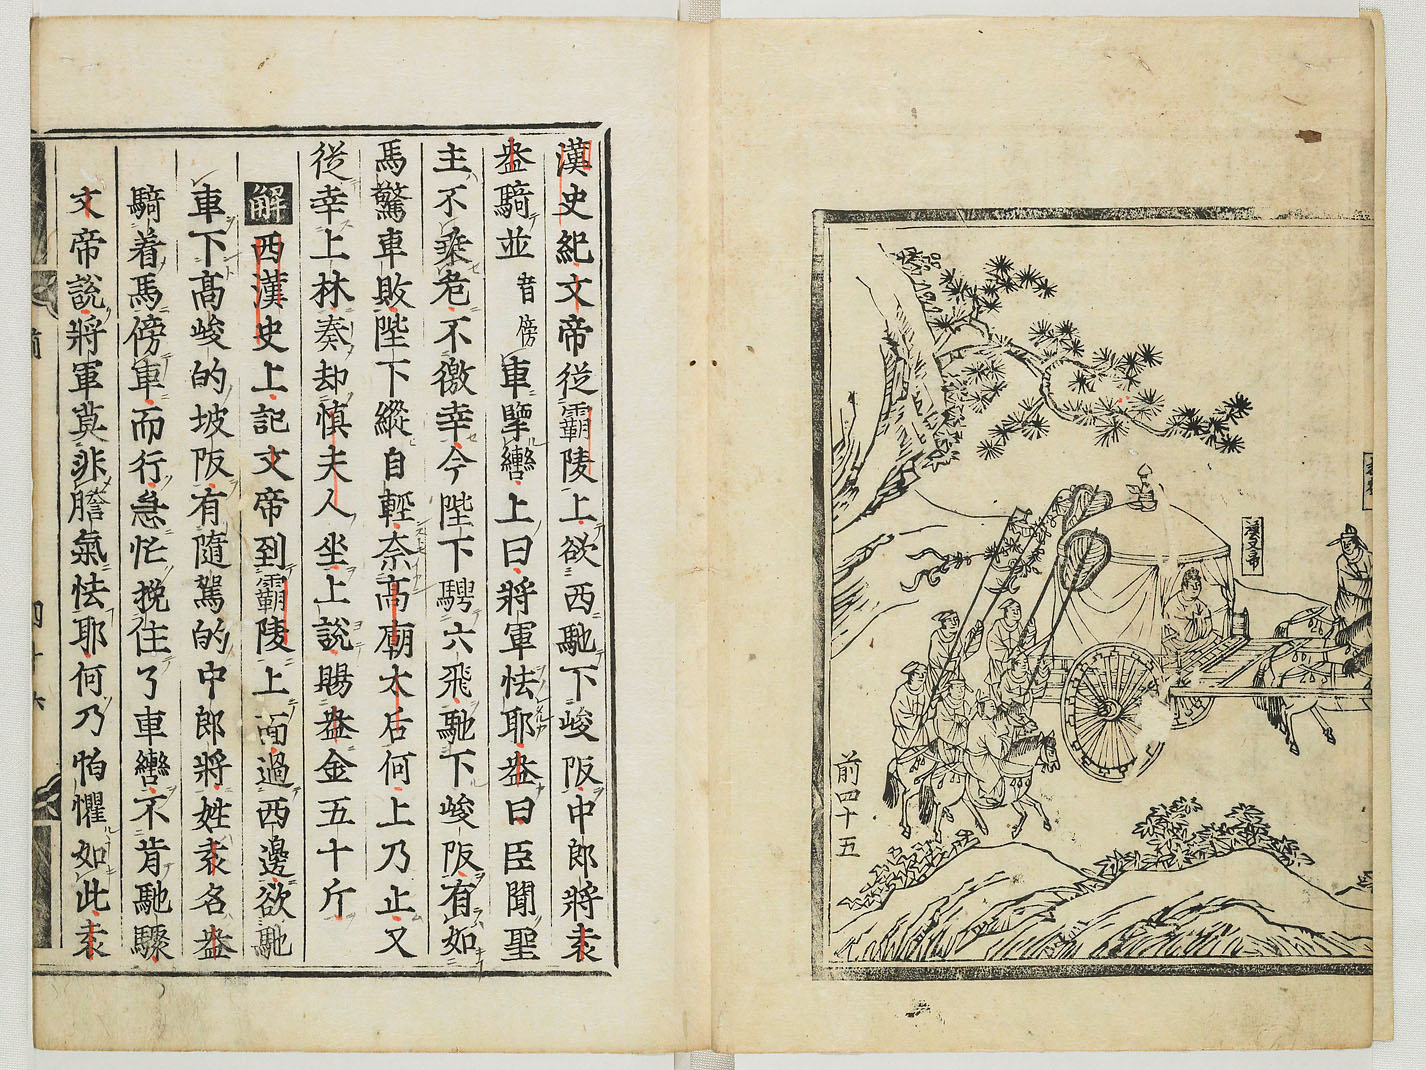 漢文帝
前四十五
漢史紀文帝從霸陵上欲西馳下峻阪中郎將袁
盎騎並音傍車擥轡上曰將軍怯耶盎曰臣聞聖
主不乗危不徼幸今陛下騁六飛馳下峻阪有如
馬驚車敗陛下縱自輕柰高廟太后何上乃止又
從幸上林奏却慎夫人坐上說賜盎金五十斤
解西漢史上記文帝到霸陵上面過西邊欲馳
車下髙峻的坡阪有隨駕的中郎將姓袁名盎
騎着馬傍車而行急忙挽住了車轡不肯馳驟
文帝說將軍莫非膽氣怯耶何乃怕懼如此袁